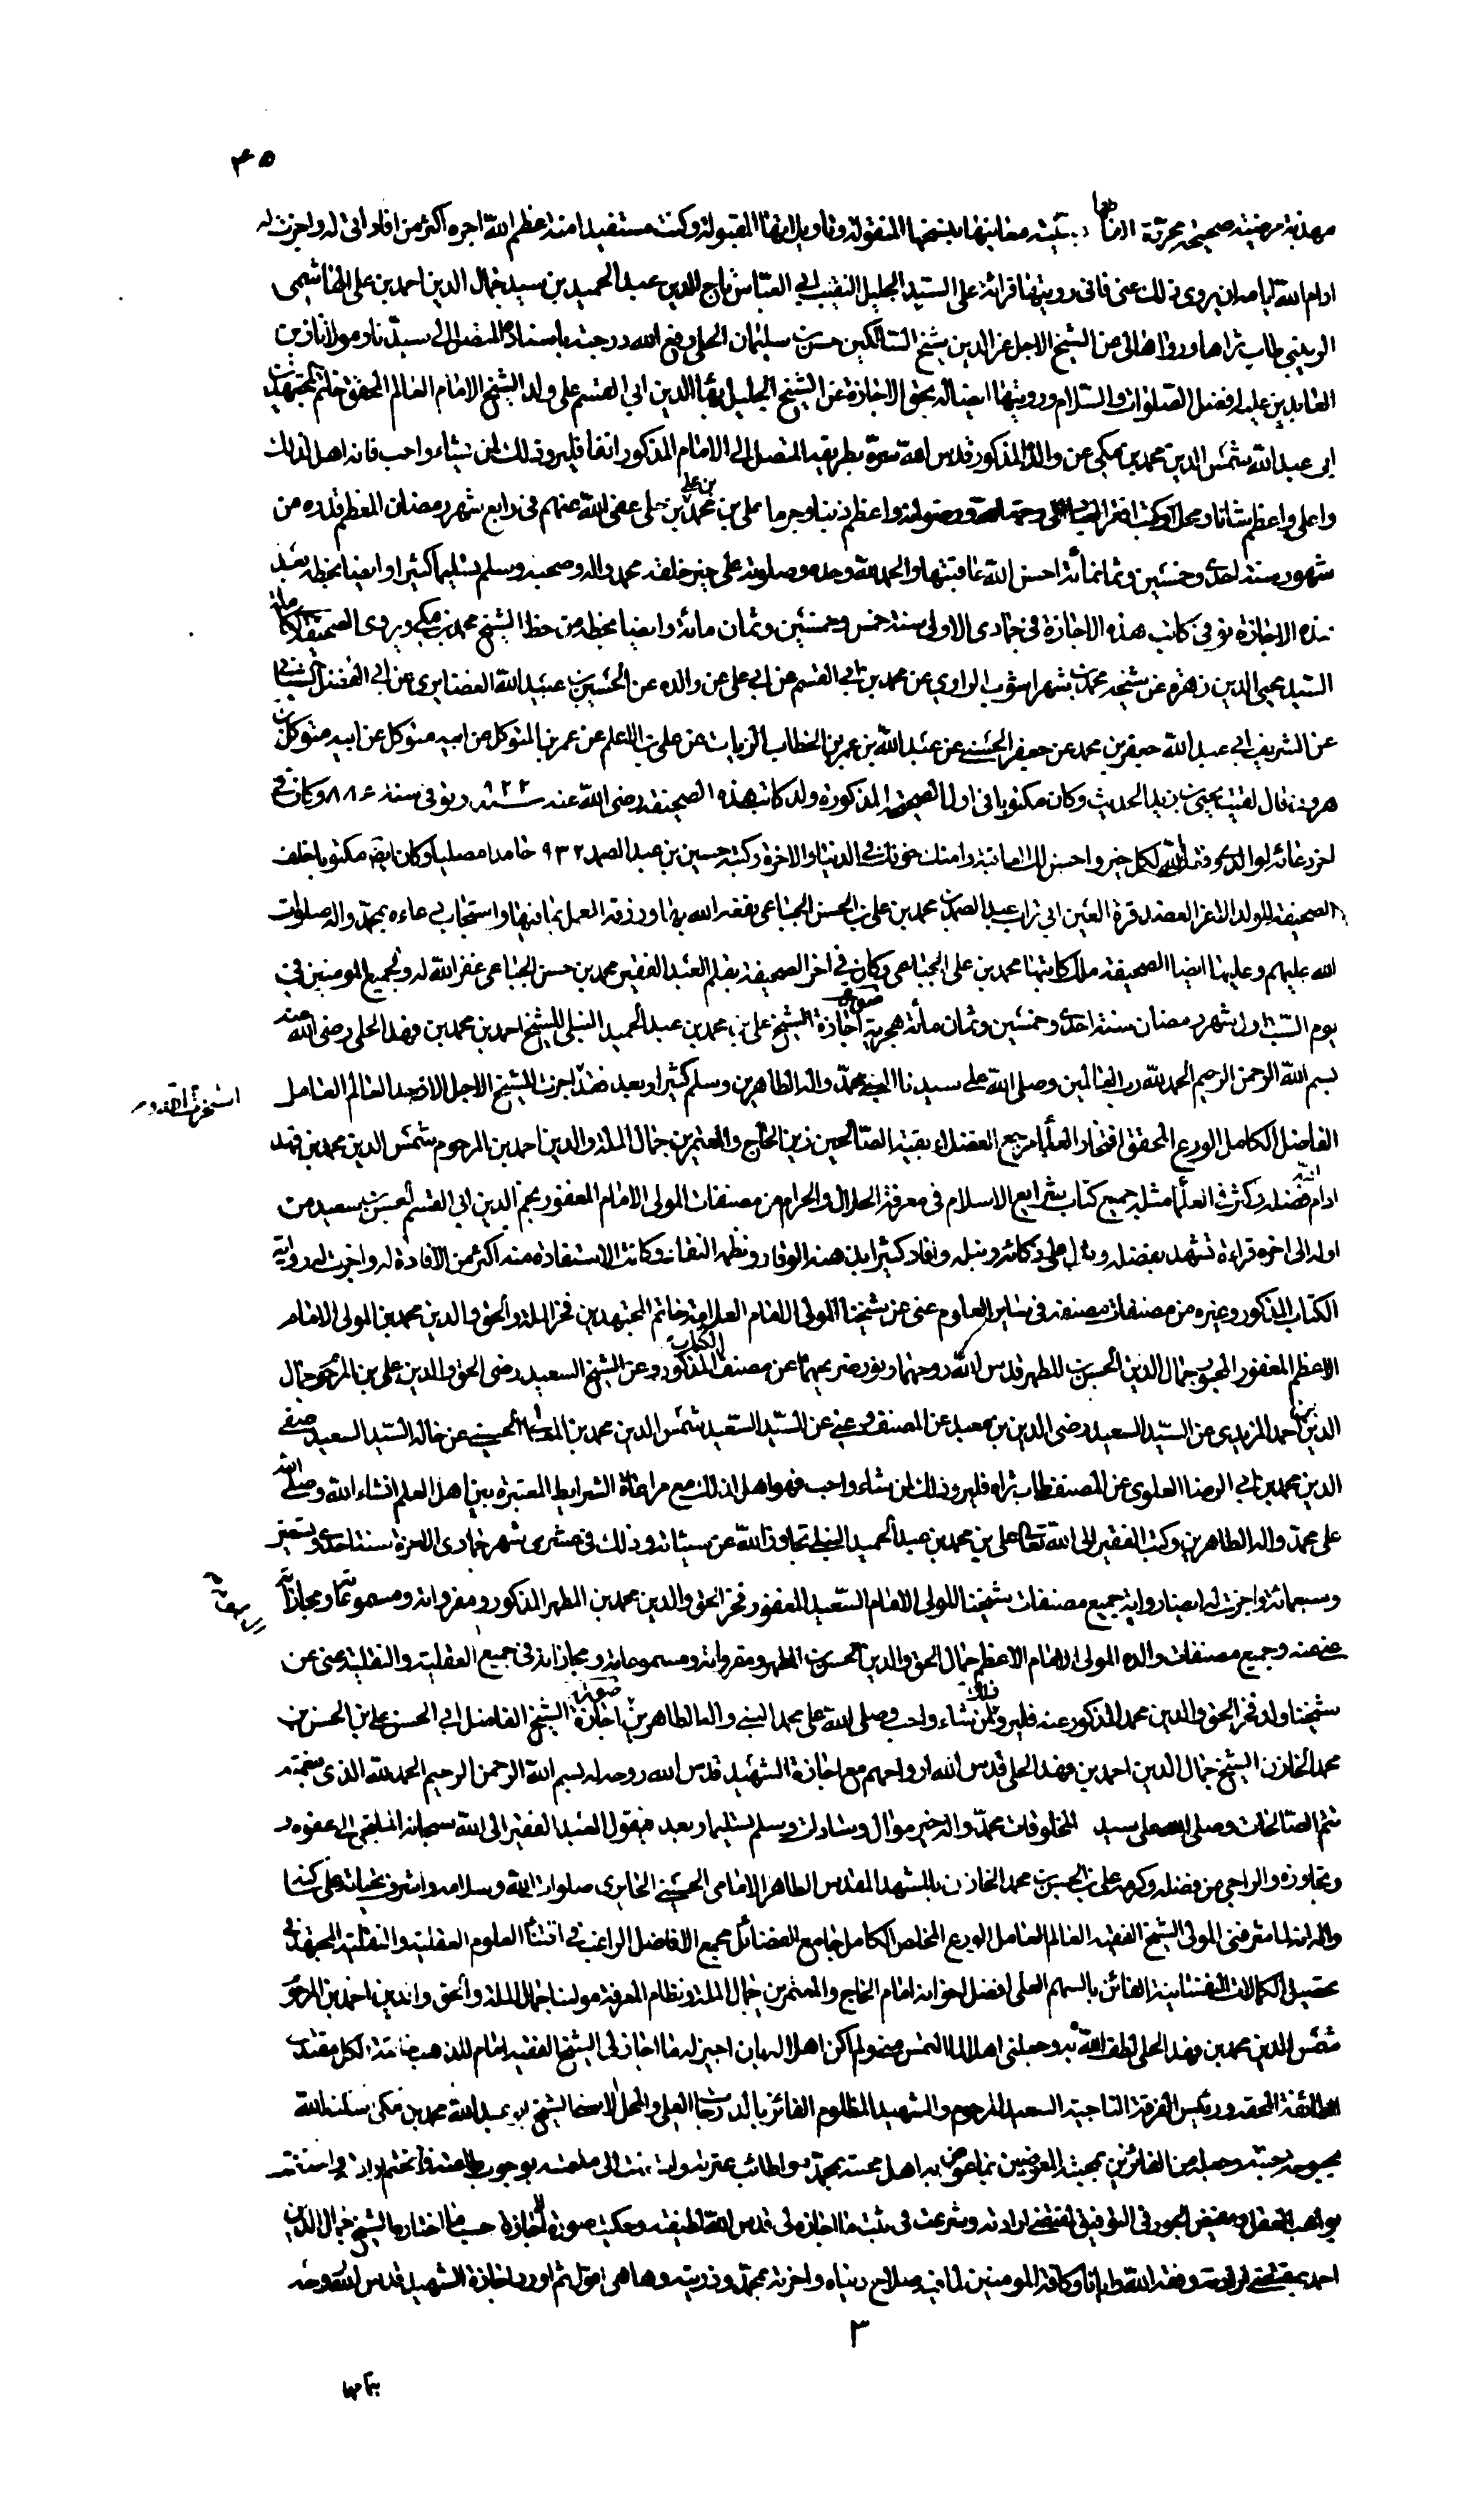 ٤٥
مهذبة مرضية صحيحة محررة الالفاظ مبينة معانيها بنسخها المنقولة وتاويلاتها المقبولة وكنت مستفيدا منه عظم الله اجره اكثر من افادتى له واجزت له
ادام الله ايامه ان يروى ذلك عنى فانى رويتها قرائة على السيد الجليل النقيب ابي العباس تاج الدين عبد الحميد بن سيد جمال الدين احمد بن على الهاشمى
الزينبي طاب ثراها ورواها لى عن الشيخ الاجل عز الدين شيخ السالكين حسن بن سليمان الحلي رفع الله درجته باسناده المتصل الى سيدنا ومولانا زين
العابدين عليه افضل الصلوات والسلام ورويتها ايضا له بحق الاجازة عن الشيخ الجليل بهاء الدين ابي القسم على ولد الشيخ الامام العالم المحقق خاتم المجتهدين
ابى عبد الله شمس الدين محمد بن مكي عن والده المذكور قدس الله سره بطريقه المتصل الى الامام المذكور انفا فليرو ذلك لمن شاء واحب فانه اهل لذلك
واعلى واعظم شانا ومحلا وكتب افقر العباد الى رحمة الله ورضوانه واعظم ذنبا وجرما على بن محمد بن على بن حلى عفى الله عنهم في رابع شهر رمضان المعظم قدره من
شهور سنة احدى وخمسين وثمانمأة احسن الله عاقبتها والحمد لله وحده وصلوته على خير خلقه محمد واله وصحبه وسلم تسليما كثيرا وايضا بخطه بعد
هذه الاجازة توفى كاتب هذه الاجازة فى جمادى الاولى سنة خمس وخمسين وثمان مائة وايضا بخطه من خط الشيخ محمد بن مكي ويروى الصحيفة الكاملة
السيد محيى الدين زهره عن شيخه محمد بن شهراشوب الراوي عن محمد بن ابي القسم عن ابي على عن والده عن الحسين بن عبيد الله الغضايري عن ابي الفضل الشيباني
عن الشريف ابي عبد الله جعفر بن محمد عن جعفر الحسنى عن عبد الله بن عمر بن الخطاب الزيات عن على بن الاعلم عن عمر بن المتوكل عن ابيه متوكل عن ابيه متوكل بن
هرون قال لقيت يحيى بن زيد الحديث وكان مكتوبا فى اول الصحيفة المذكورة ولد كاتب هذه الصحيفة رضى الله عنه سنة ٨٢٢ وتوفى سنة ٨٨٤ وكان في
اخر دعائه لوالديه وفقك الله لكل خير واحسن لك العاقبة وامنك خوفك في الدنيا والاخرة وكتبه حسين بن عبد الصمد ٩٣٢ حامدا مصليا وكان ايضا مكتوبا خلف
الصحيفة للولد الاعز العضد قرة العين ابى تراب عبد الصمد بن محمد بن على بن الحسن الجباعى نفعه الله بها ورزقه العمل بما فيها واستجاب دعاءه بمحمد واله صلوات
الله عليهم وعليها ايضا الصحيفة ملك كاتبها محمد بن على الجباعى وكان في اخر الصحيفة بقلم العبد الفقير محمد بن حسن الجباعى غفر الله له ولجميع المومنين في
يوم السبت اول شهر رمضان سنة احدى وخمسين وثمان مأة هجرية صورة اجازة الشيخ على بن محمد بن عبد الحميد النيلي للشيخ احمد بن محمد بن فهد الحلي رضى الله عنه
بسم الله الرحمن الرحيم الحمد لله رب العالمين وصلى الله على سيدنا النبي محمد واله الطاهرين وسلم كثيرا وبعد فقد اجزت للشيخ الاجل الاوحد العالم العامل
استخرت الله و
الفاضل الكامل الورع المحقق افتخار العلماء مرجع الفضلاء بقية الصالحين زين الحاج والمعتمرين جمال الملة والدين احمد بن المرحوم شمس الدين محمد بن فهد
ادام الله فضله وكثر فى العلماء مثله جميع كتاب شرايع الاسلام فى معرفة الحلال والحرام من مصنفات المولى الامام المغفور نجم الدين ابى القسم جعفر بن سعيد من
اوله الى اخره قراءة تشهد بفضله وتدل على ذكائه ونبله وافاد كثيرا بذهنه الوقاد ونظره النقاد وكانت الاستفادة منه اكثر من الافادة له واجزت له رواية
الكتاب المذكور وغيره من مصنفات مصنفه فى ساير العلوم عنى عن شيخنا المولى الامام العلامة خاتم المجتهدين فخر الملة والحق والدين محمد بن المولى الامام
الاعظم المغفور المحبور جمال الدين الحسن بن المطهر قدس الله روحهما ونور ضريحهما عن مصنف الكتاب المذكور وعن الشيخ السعيد رضى الحق والدين على بن المرحوم جمال
الدين احمد المزيدى عن السيد السعيد رضى الدين بن معيد عن المصنف وعنى عن السيد السعيد شمس الدين محمد بن الحسينى عن خاله السيد السعيد صفى
الدين محمد بن ابي الرضا العلوى عن المصنف طاب ثراه فليرو ذلك لمن شاء واحب فهو اهل لذلك مع مراعاة الشرايط المعتبرة بين اهل العلم انشاء الله وصلى الله
على محمد واله الطاهرين وكتب الفقير الى الله تعالى على بن محمد بن عبد الحميد النيلي تجاوز الله عن سيئاته وذلك فى عشرى شهر جمادى الاخرة سنة احدى وتسعين
وسبعمائة واجزت له ايضا رواية جميع مصنفات شيخنا المولى الامام السعيد المغفور فخر الحق والدين محمد بن المطهر المذكور ومقرواته ومسموعاته ومجازاته
عنى عنه وجميع مصنفات والده المولى الامام الاعظم جمال الحق والدين الحسن بن المطهر ومقرواته ومسموعاته ومجازاته فى جميع العقلية والنقلية عنى عن
شيخنا ولده فخر الحق والدين محمد المذكور عنه فليرو ذلك لمن شاء واحب وصلى الله على محمد النبي واله الطاهرين صورة اجازة الشيخ الفاضل ابي الحسن على بن الحسن بن
محمد الخازن الشيخ جمال الدين احمد بن فهد الحلي قدس الله ارواحهم مع اجازة الشهيد قدس الله روحه له بسم الله الرحمن الرحيم الحمد لله الذى بنعمته
تتم الصالحات وصلى الله على سيد المخلوقات محمد واله خير موال وسادات وسلم تسليما وبعد فيقول العبد الفقير الى الله سبحانه الملتجى الى عفوه
وتجاوزه والراجي من فضله وكرمه على بن الحسن بن محمد الخازن بالمشهد المقدس الطاهر الامامى الحسينى الحايرى صلوات الله وسلامه واشرف تحياته على ساكنه
والله انه لما شرفنى المولى الشيخ الفقيه العالم العامل الورع المخلص الكامل جامع الفضائل مجمع الافاضل الراغب فى اقتناء العلوم العقلية والنقلية المجتهد فى
تحصيل الكمالات النفسانية الفائز بالسهم العلى افضل اخوانه امام الحاج والمعتمرين جمال الملة ونظام الفرقة مولانا جمال الملة والحق والدين احمد بن المرحوم
شمس الدين محمد بن فهد الحلي لطف الله به وجعلنى اهلا لما التمس منى ولم اكن اهلا له بان اجيز له ما اجاز لى الشيخ الفقيه امام المذهب خاتمة الكل مقتدى
الطائفة المحقه ورئيس الفرقة الناجية السعيد المرحوم والشهيد المظلوم الفائز بالدرجات العلى والمحل الاسنى الشيخ ابو عبد الله محمد بن مكي اسكنه الله
بحبوحة جنته وجعله من الفائزين بمحبته المعوضين بما عوض به اهل محبته بمحمد واطائب عترته ملتمسه بوجوب طاعته
بواهب العقل ومفيض الجود فى التوفيق لمقتضى ارادته وشرعت فى ثبت ما اجازه لى قدس الله لطيفته وحكيت صورة الاجازة حسب ما اختاره الشيخ جمال الدين
احمد بمقتضى ارادته وفقه الله وايانا وكافة المومنين لما فيه صلاح دنياه واخرته بمحمد وذريته وها هى اقول ثم اورد اجازة الشهيد قدس الله روحه
٣
بتمامها